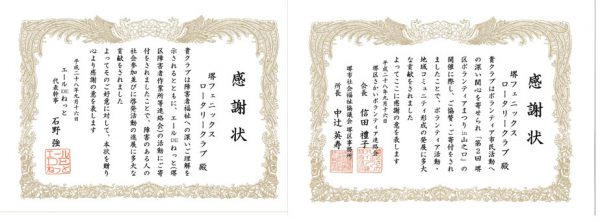 感謝状
堺フェニックス
ロータリークラブ 殿
貴クラブは障害者福祉への深いご理解を
示されるとともに、エールDEねっと（堺
区障害者作業所等連絡会）の活動にご寄
付をされましたことで、障害のある人の
社会参加並びに啓発活動の進展に多大な
貢献をされました
よってそのご好意に対して、本状を贈り
心より感謝の意を表します
平成二十八年九月十六日
エールDEねっと
代表幹事 石野 強
感謝状
堺フェニックス
ロータリークラブ 殿
貴クラブはボランティア市民活動へ
の深い関心を寄せられ「第2回 堺
区ボランティアまつりin山之口」の
開催に際し、ご協賛・ご寄付をされ
ましたことで、ボランティア活動・
地域コミュニティ形成の発展に多大
な貢献をされました
よってここに感謝の意を表します
平成二十八年九月十六日
堺区さかいボランティア連絡会
会長 信田 禮子
堺市社会福祉協議会 堺区事務所
所長 中辻 英寿